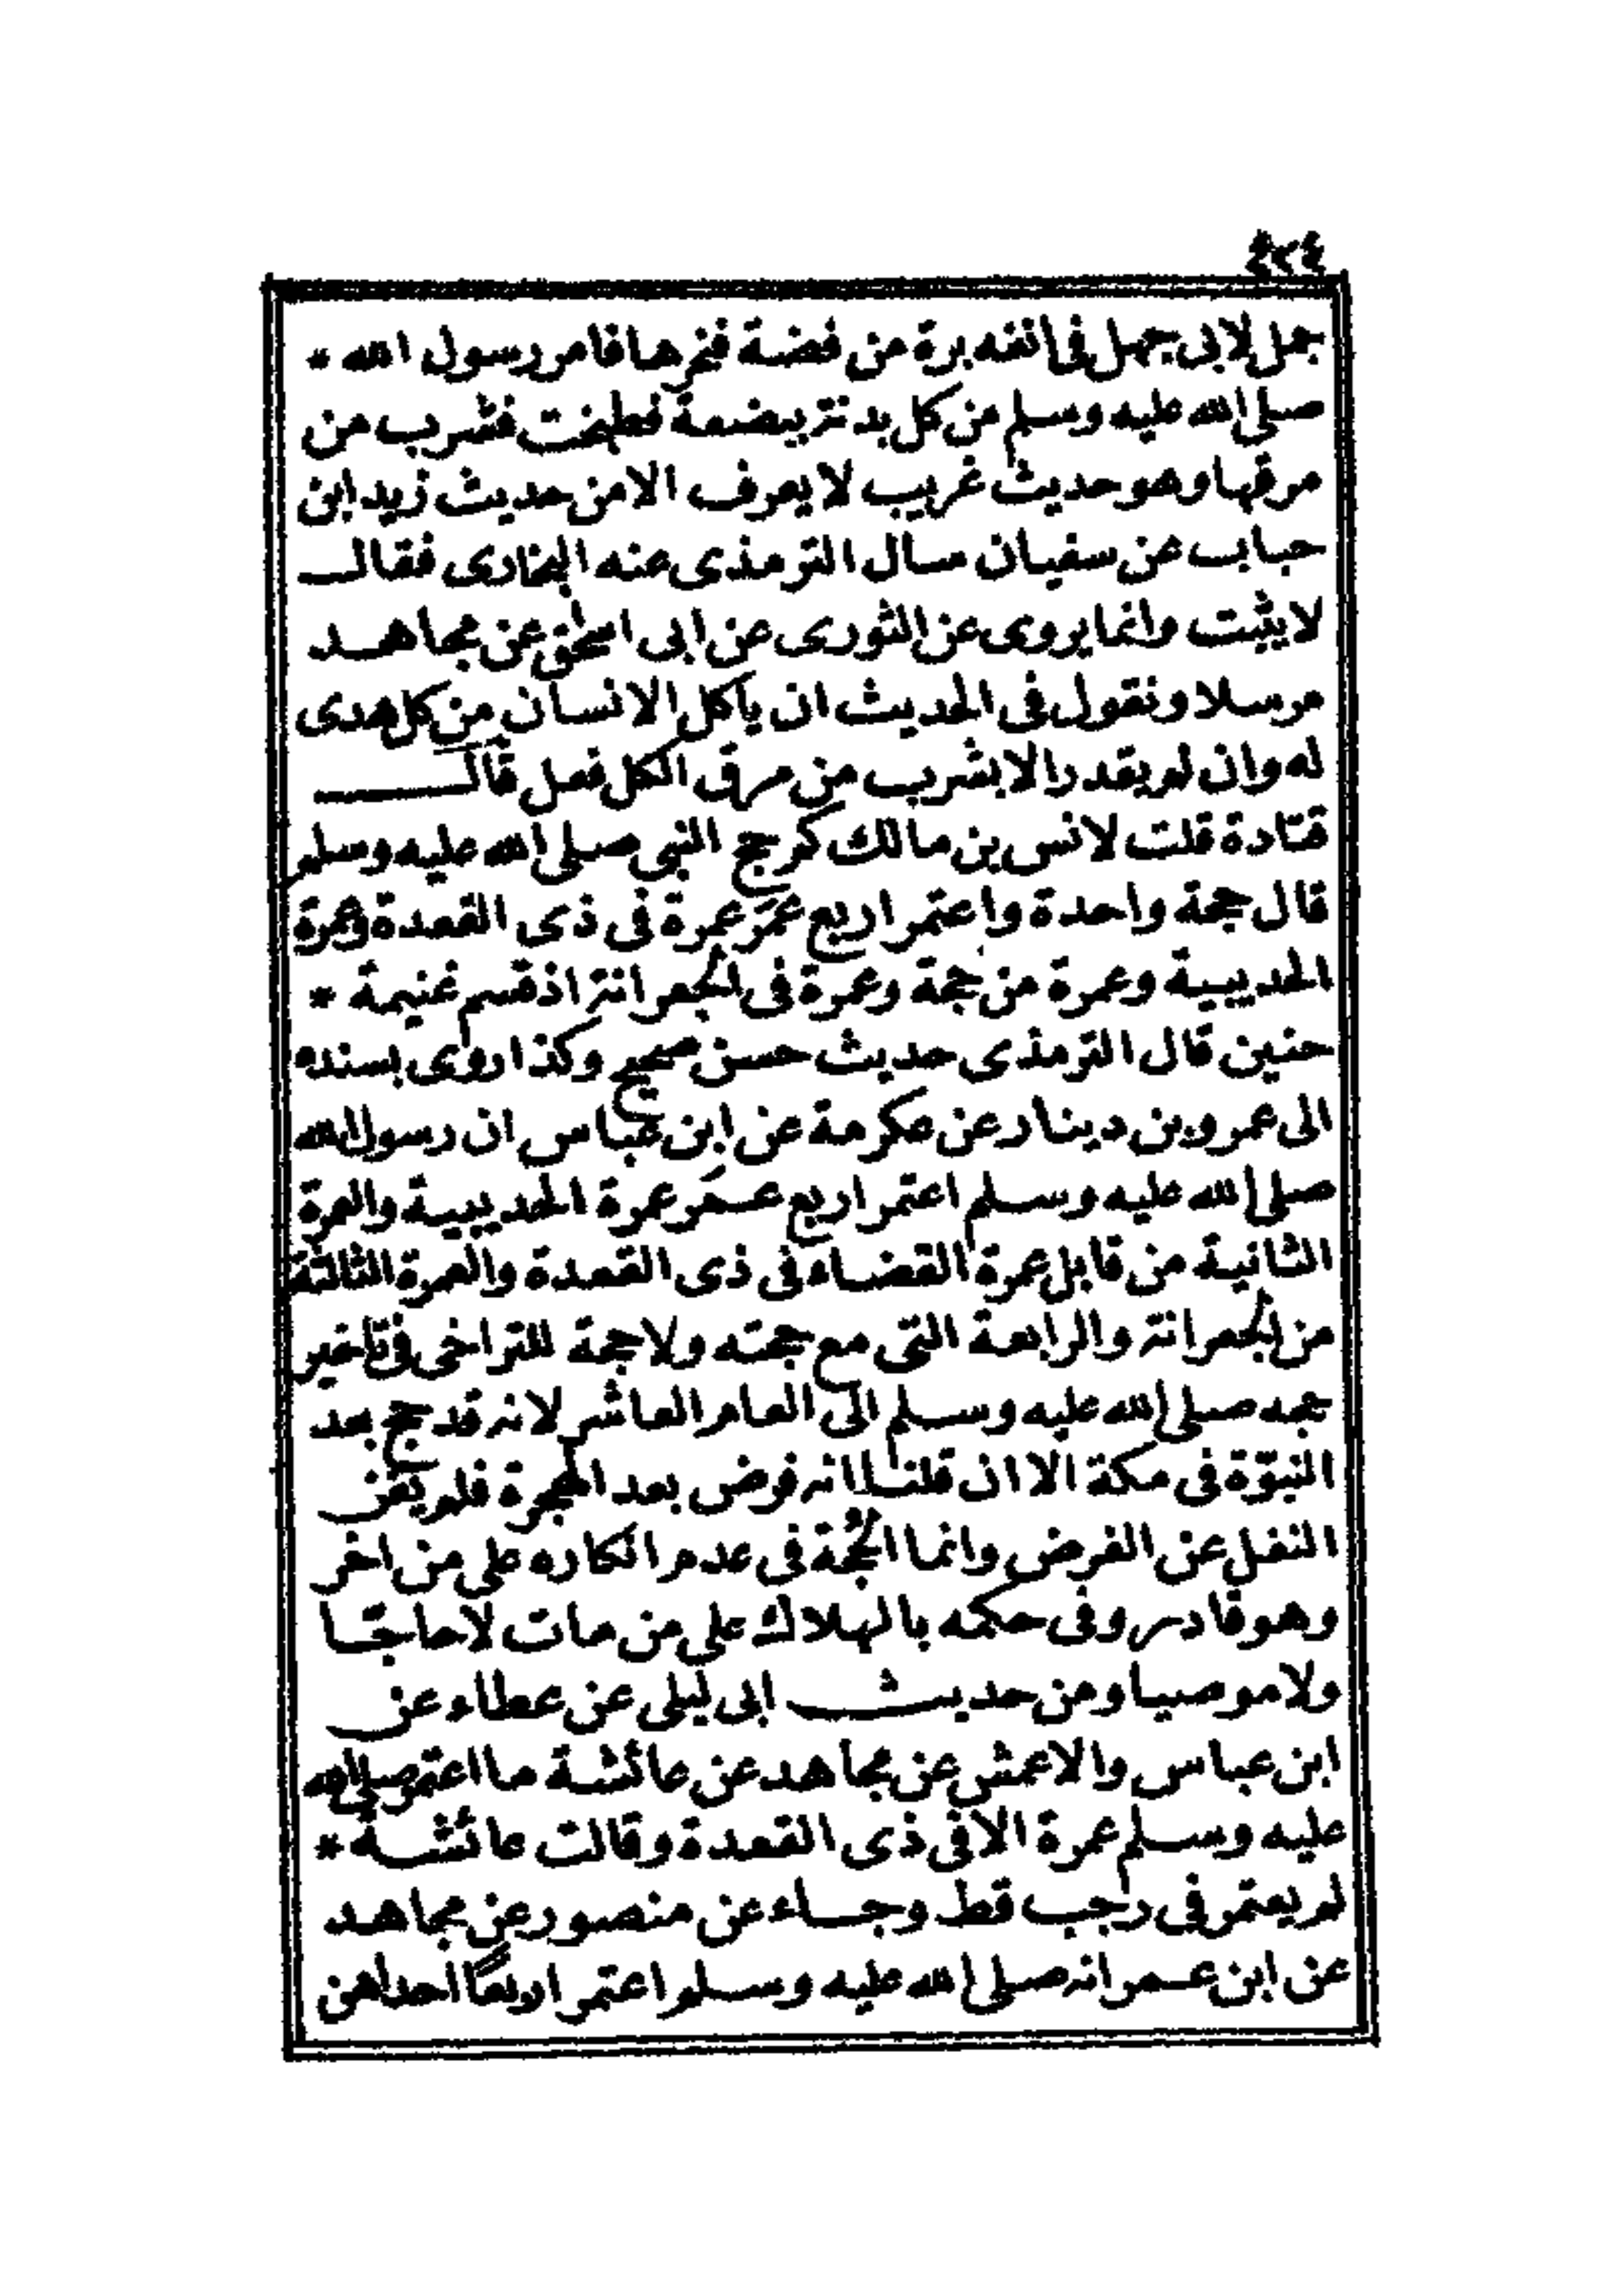 ٤٢٤
جمل لابى جهل فى انفه برة من فضة فنحرها فامر رسول الله *
صلى الله عليه وسلم من كل بدنة ببضعة فطبخت فشرب من
مرقها وهو حديث غريب لا يعرف الا من حديث زيد ابن
حباب عن سفيان سال الترمذى عنه البخارى فقال
لا يثبت وانما يروى عن الثورى عن ابى اسحق عن مجاهد
مرسلا ونقول فى الحديث ان ياكل الانسان من كل هدى
له وان لم يقدر الا بشرب من مرق الكل فعل قال
قتادة قلت لانس بن مالك كم حج النبى صلى الله عليه وسلم
قال حجة واحدة واعتمر اربع عمر عمرة فى ذى القعدة وعمرة
الحديبية وعمرة من حجة وعمرة فى الجعرانة اذ قسم غنيمة *
حنين قال الترمذى حديث حسن صحيح وكذا روى بسنده
الى عمرو بن دينار عن عكرمة عن ابن عباس ان رسول الله
صلى الله عليه وسلم اعتمر اربع عمر عمرة الحديبية والعمرة
الثانية من قابل عمرة القضاء فى ذى القعدة والعمرة الثالثة
من الجعرانة والرابعة التى مع حجته ولا حجة للتراخى فى تاخير
حجه صلى الله عليه وسلم الى العام العاشر لانه قد حج بعد
النبوّة فى مكة الا ان قلنا انه فرض بعد الهجرة فلم يغن
النفل عن الفرض وانما الحُجّة فى عدم انكاره على من اخر
وهو قادر وفى حكمه بالهلاك على من مات لا حاجّا
ولا موصيا ومن حديث ابى ليلى عن عطاء عن
ابن عباس والاعمش عن مجاهد عن عائشة ما اعتمر صلى الله
عليه وسلم عمرة الا فى ذى القعدة وقالت عائشة *
لم يعتمر فى رجب قط وجاء عن منصور عن مجاهد
عن ابن عمر انه صلى الله عليه وسلم اعتمر اربعًا احداهن